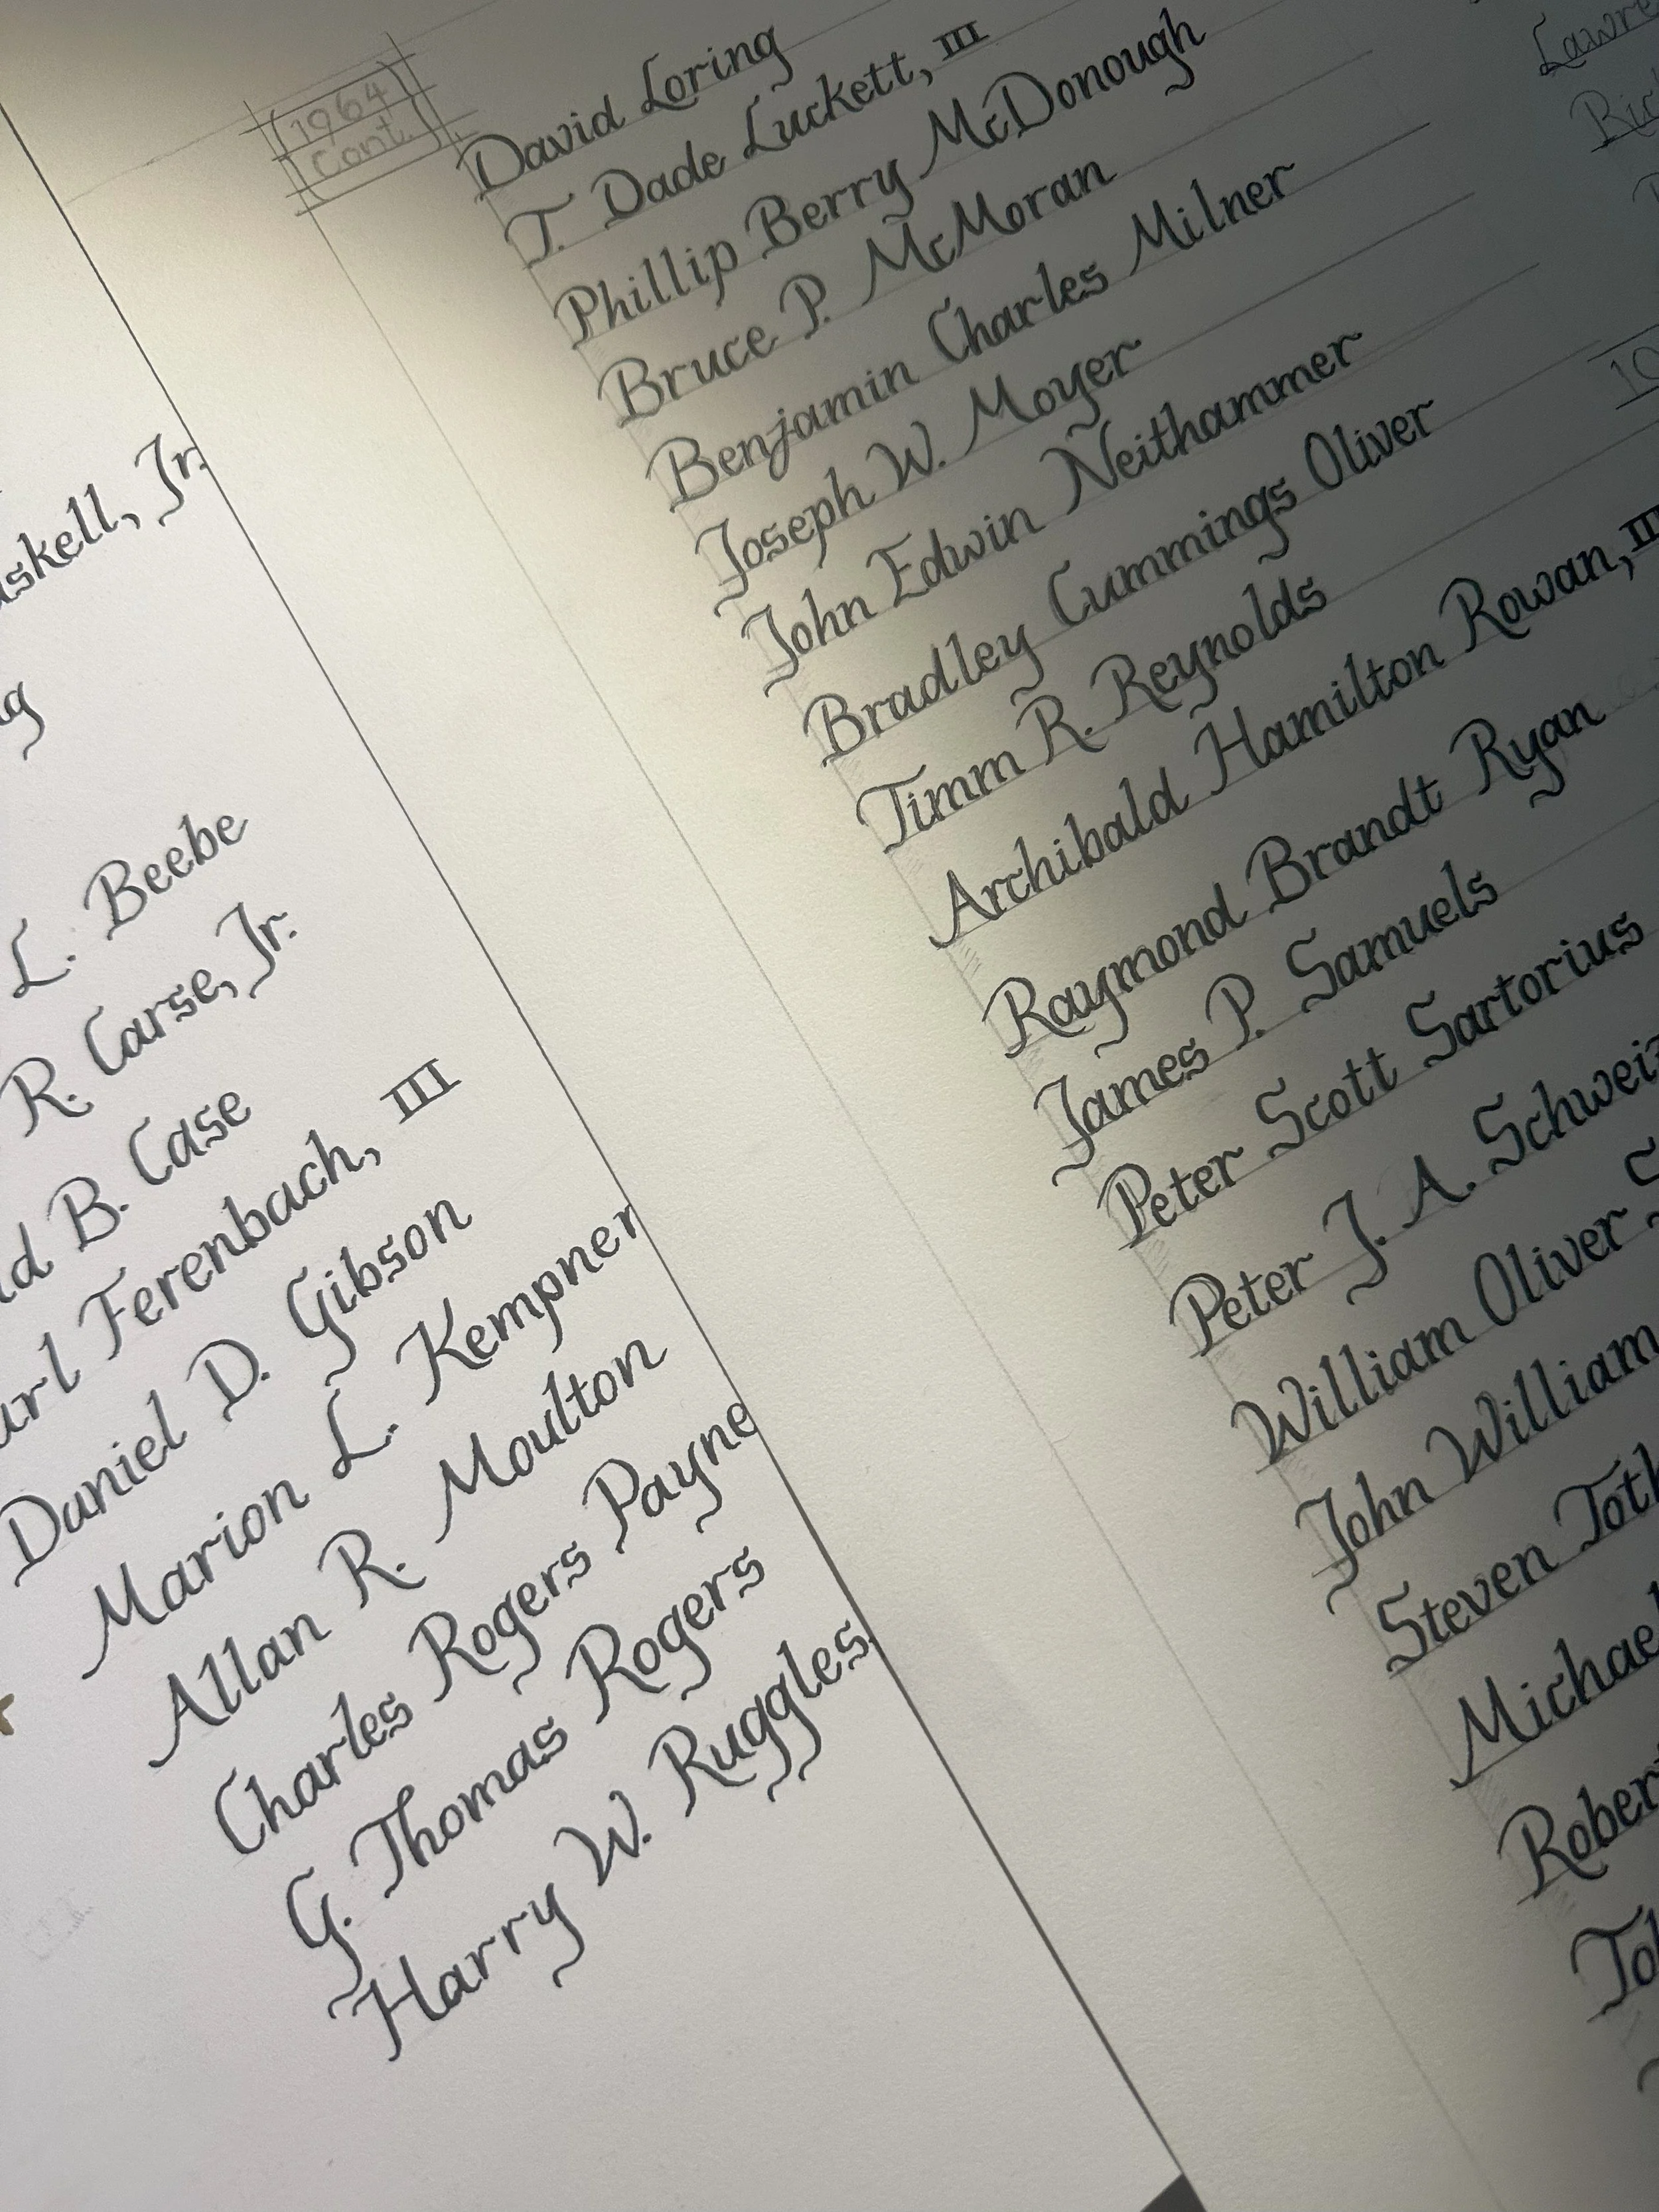 Jr.
L. Beebe
R. Carse, Jr.
B. Case
Ferenbach, III
Daniel D. Gibson
Marion L. Kempner
Allan R. Moulton
Charles Rogers Payne
G. Thomas Rogers
Harry W. Ruggles
(1964
cont.)
David Loring
T. Dade Luckett, III
Phillip Berry McDonough
Bruce P. McMoran
Benjamin Charles Milner
Joseph W. Moyer
John Edwin Neithammer
Bradley Cummings Oliver
Timm R. Reynolds
Archibald Hamilton Rowan, III
Raymond Brandt Ryan
James P. Samuels
Peter Scott Sartorius
Peter J. A.
William Oliver
John William
Steven